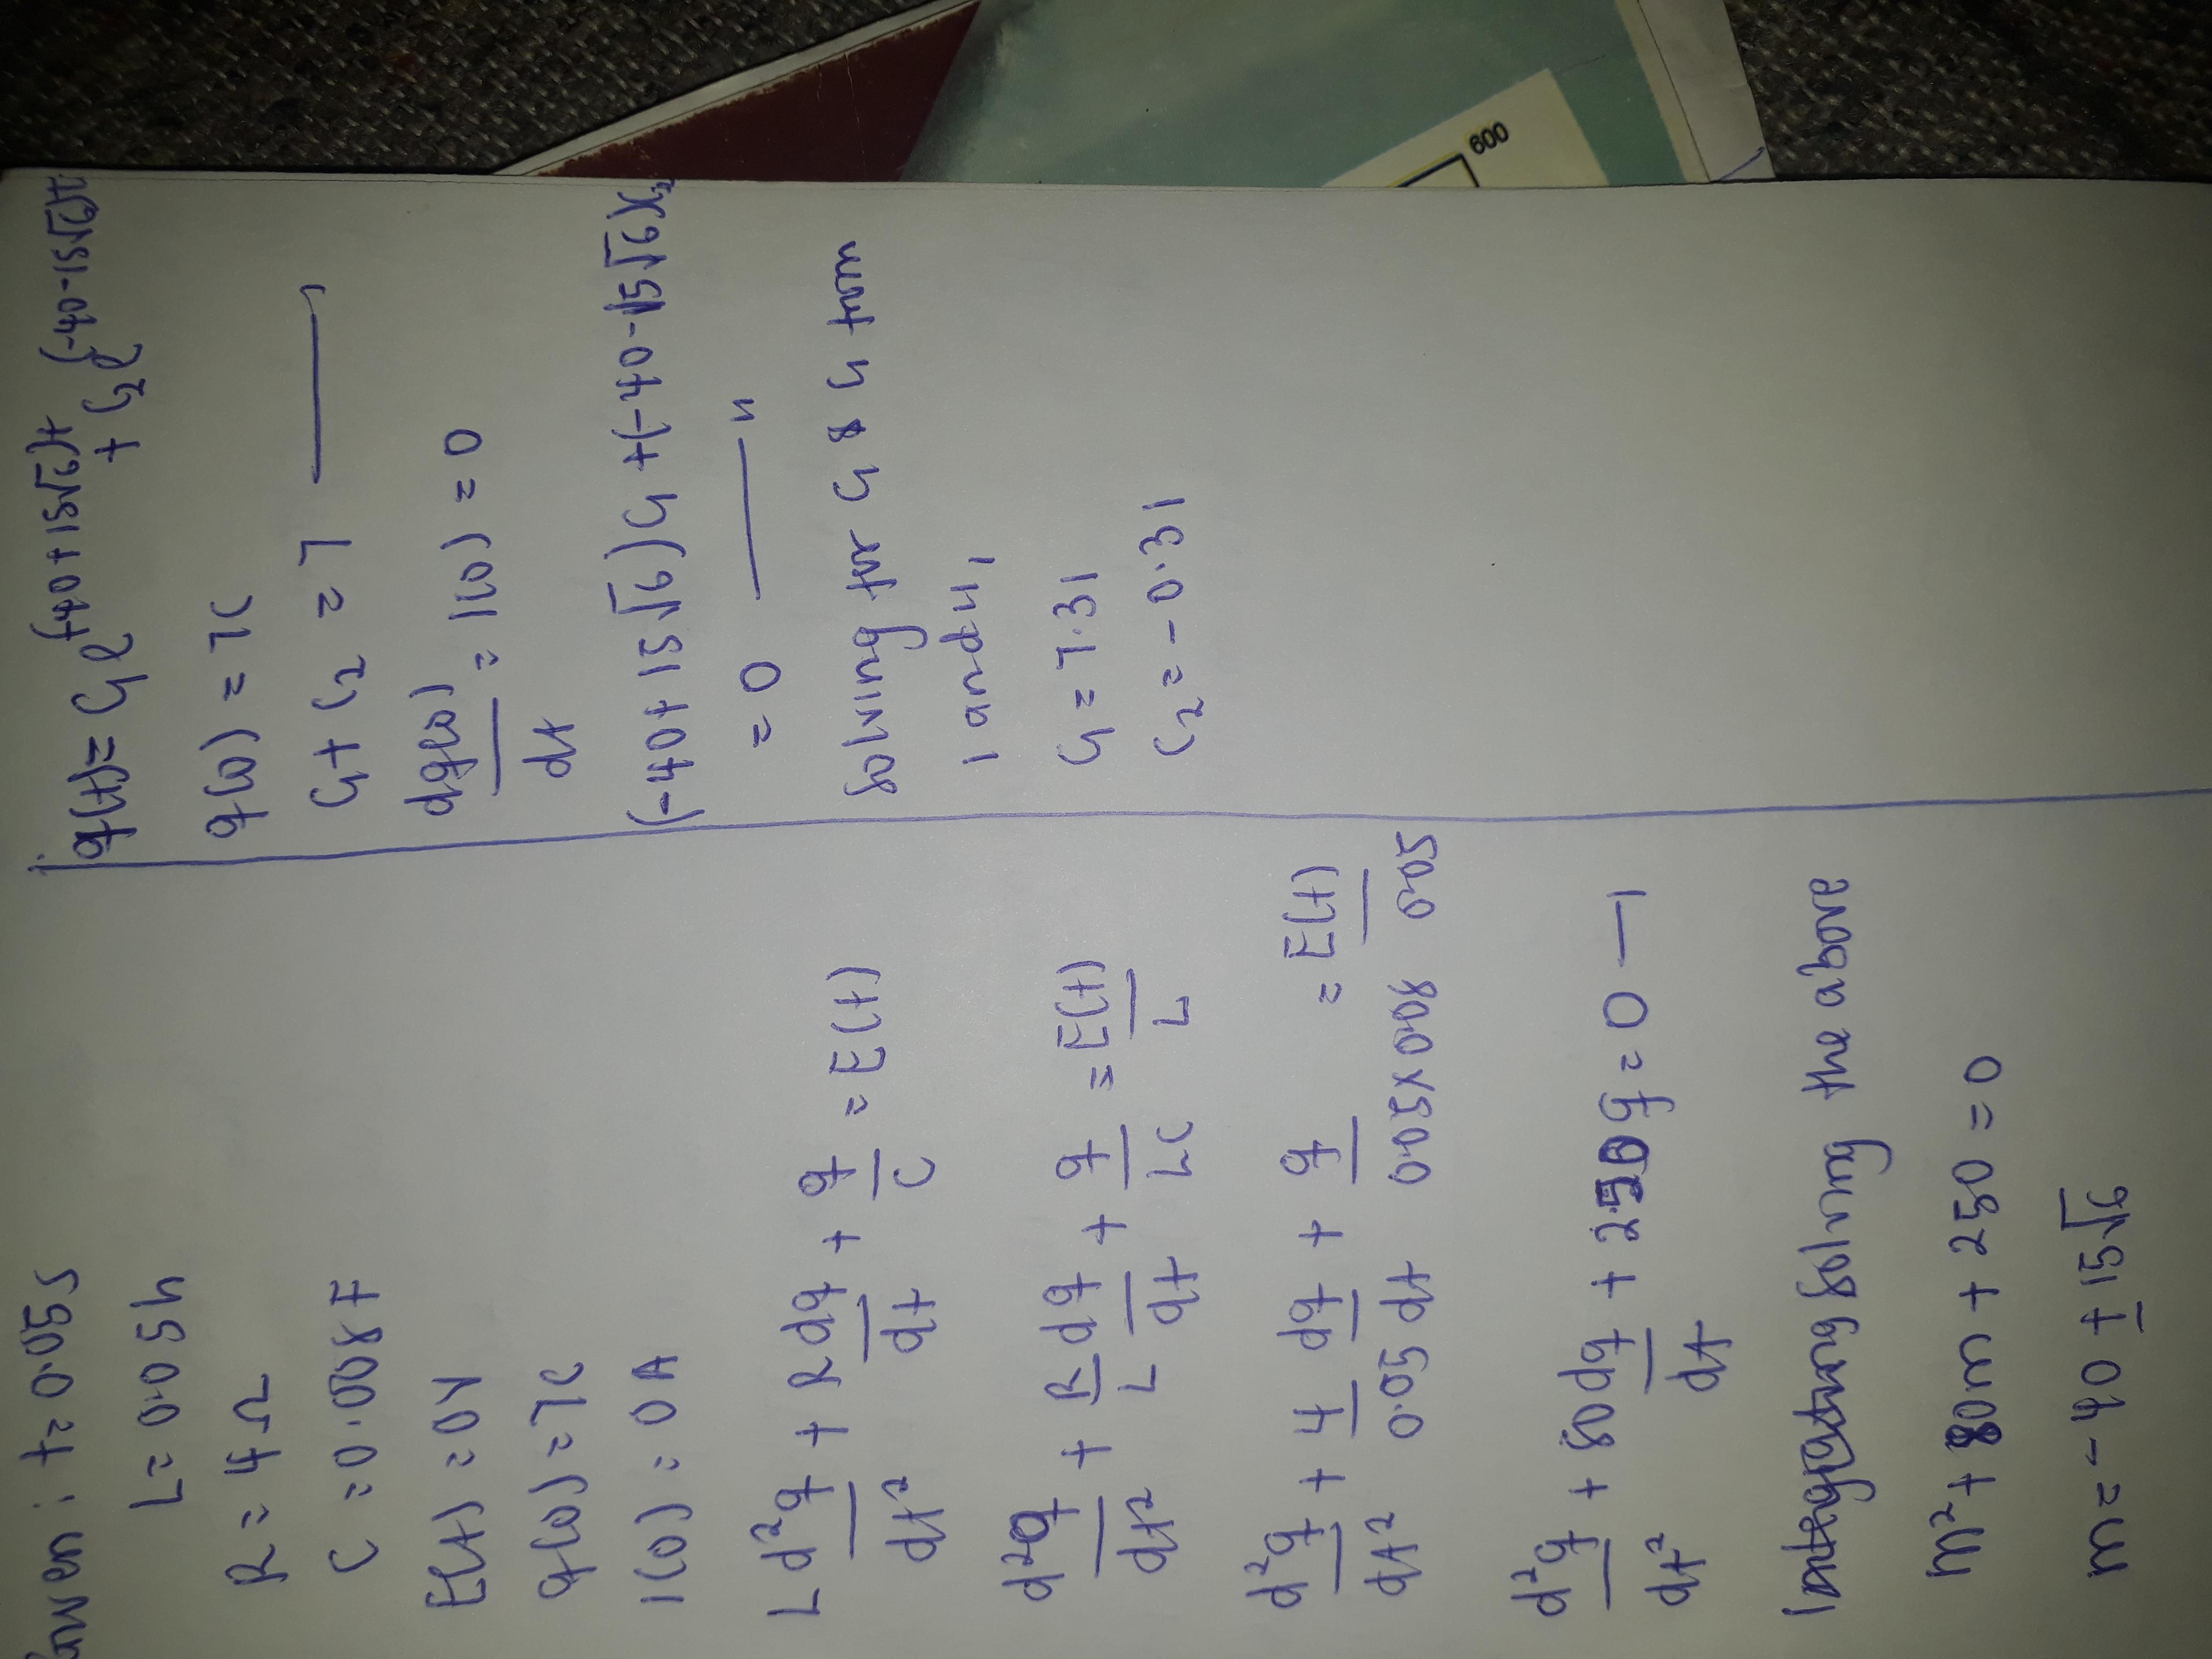 Given: t = 0.05s
L = 0.05h
R = 4Ω
C = 0.008F
E(t) = 0V
q(0) = 7C
I(0) = 0A
L d²q/dt² + R dq/dt + q/C = E(t)
d²q/dt² + R/L dq/dt + q/LC = E(t)/L
d²q/dt² + 4/0.05 dq/dt + q/0.05x0.008 = E(t)/0.05
d²q/dt² + 80dq/dt + 2500q = 0 — 1
solving the above
m² + 80m + 250 = 0
m = -40 ± 15√6
q(t) = C₁e^(-40+15√6)t
+ C₂e^(-40-15√6)t
q(0) = 7C
C₁ + C₂ = 7 ——— 1
dq(0)/dt = I(0) = 0
(-40+15√6)C₁ + (-40-15√6)C₂
= 0 ——— 11
solving for C₁ & C₁ from
1 and 11,
C₁ = 7.31
C₂ = -0.31
600